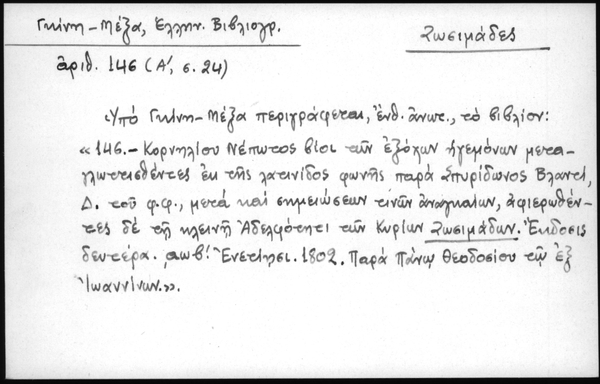 Γκίνη-Μέξα, Ἑλλην. Βιβλιογρ.
Ζωσιμάδες
ἀριθ. 146 (Α΄, σ. 24)
Ὑπό Γκίνη-Μέξα περιγράφεται, ἔνθ. ἀνωτ., τό βιβλίον:
«146.- Κορνηλίου Νέπωτος βίοι τῶν ἐξόχων ἡγεμόνων μετα-
γλωττισθέντες ἐκ τῆς λατινίδος φωνῆς παρά Σπυρίδωνος Βλαντῆ,
Δ. τοῦ φ.φ., μετά καί σημειώσεων τινῶν ἀναγκαίων, ἀφιερωθέν-
τες δέ τῇ κλεινῇ Ἀδελφότητι τῶν Κυρίων Ζωσιμάδων. Ἔκδοσις
δευτέρα. ͵αωβ΄. Ἐνετίησι. 1802. Παρά Πάνῳ Θεοδοσίου τῷ ἐξ
Ἰωαννίνων.».